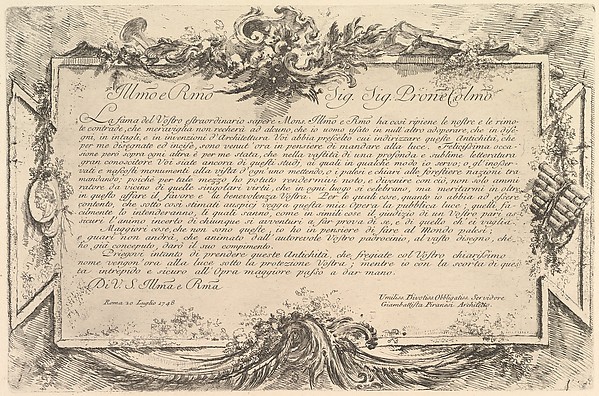 Illmo e Rmo Sig. Sig. Prone Colmo
La fama del Vostro estraordinario sapere Mons. Illmo e Rmo ha così ripiene le nostre e le rimo-
te contrade, che meraviglia non recherà ad alcuno, che io uomo usato in null'altro adoperare, che in dise-
gni, in intagli, e in invenzioni d'Architettura, Voi abbia prescelto cui indirizzare queste Antichità, che
per me disegnate ed incise, sono venut'ora in pensiere di mandare alla luce. Felicissima occa-
sione però sopra ogni altra è per me stata, che nella vastità di una profonda e sublime letteratura
gran conoscitore Voi siate ancora di questi studj, ai quali in qualche modo io servo; o gl'inosser-
vati e nascosti monumenti alla vista d'ogni uno mettendo, o i palesi e chiari alle forestiere nazioni tra-
mandando; poichè per tale mezzo ho potuto rendermivi noto, e divenire con ciò, non solo ammi-
ratore da vicino di quelle singolari virtù, che in ogni luogo si celebrano, ma meritarmi in oltre
in questo affare il favore e la benevolenza Vostra. Per le quali cose, quanto io abbia ad essere
contento, che sotto così stimati auspicj vegga questa mia Opera la pubblica luce; quelli fa-
cilmente lo intenderanno, li quali sanno, come in simili cose il giudizio di un Vostro pari as-
sicuri l'animo incerto di chiunque si avventuri a far prova di se, e di quello ch'ei vaglia.
Maggiori cose, che non sono queste, io ho in pensiere di fare al Mondo palesi;
e guari non andrà, che animato dall'autorevole Vostro padrocinio, al vasto disegno, che
ho già conceputo, darò il suo compimento.
Priegovi intanto di prendere queste Antichità, che fregiate col Vostro chiarissimo
nome vengon'ora alla luce sotto la protezione Vostra; mentre io con la scorta di que-
sta intrepido e sicuro all'Opra maggiore passo a dar mano.
Di V. S. Illma e Rma
Roma 20 Luglio 1748
Umiliss. Divotiss. Obbligatiss. Servidore
Giambattista Piranesi Architetto